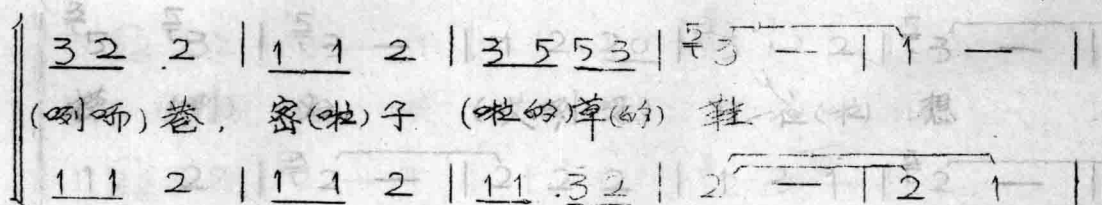 3 2 2 | 1 1 2 | 3 5 5 3 | 5 3 — | 1 — |
(咧呀)巷, 密(啦)子 (啦的)草(的) 鞋.
1 1 2 | 1 1 2 | 1 1 . 3 2 | 2 — | 2 1 |